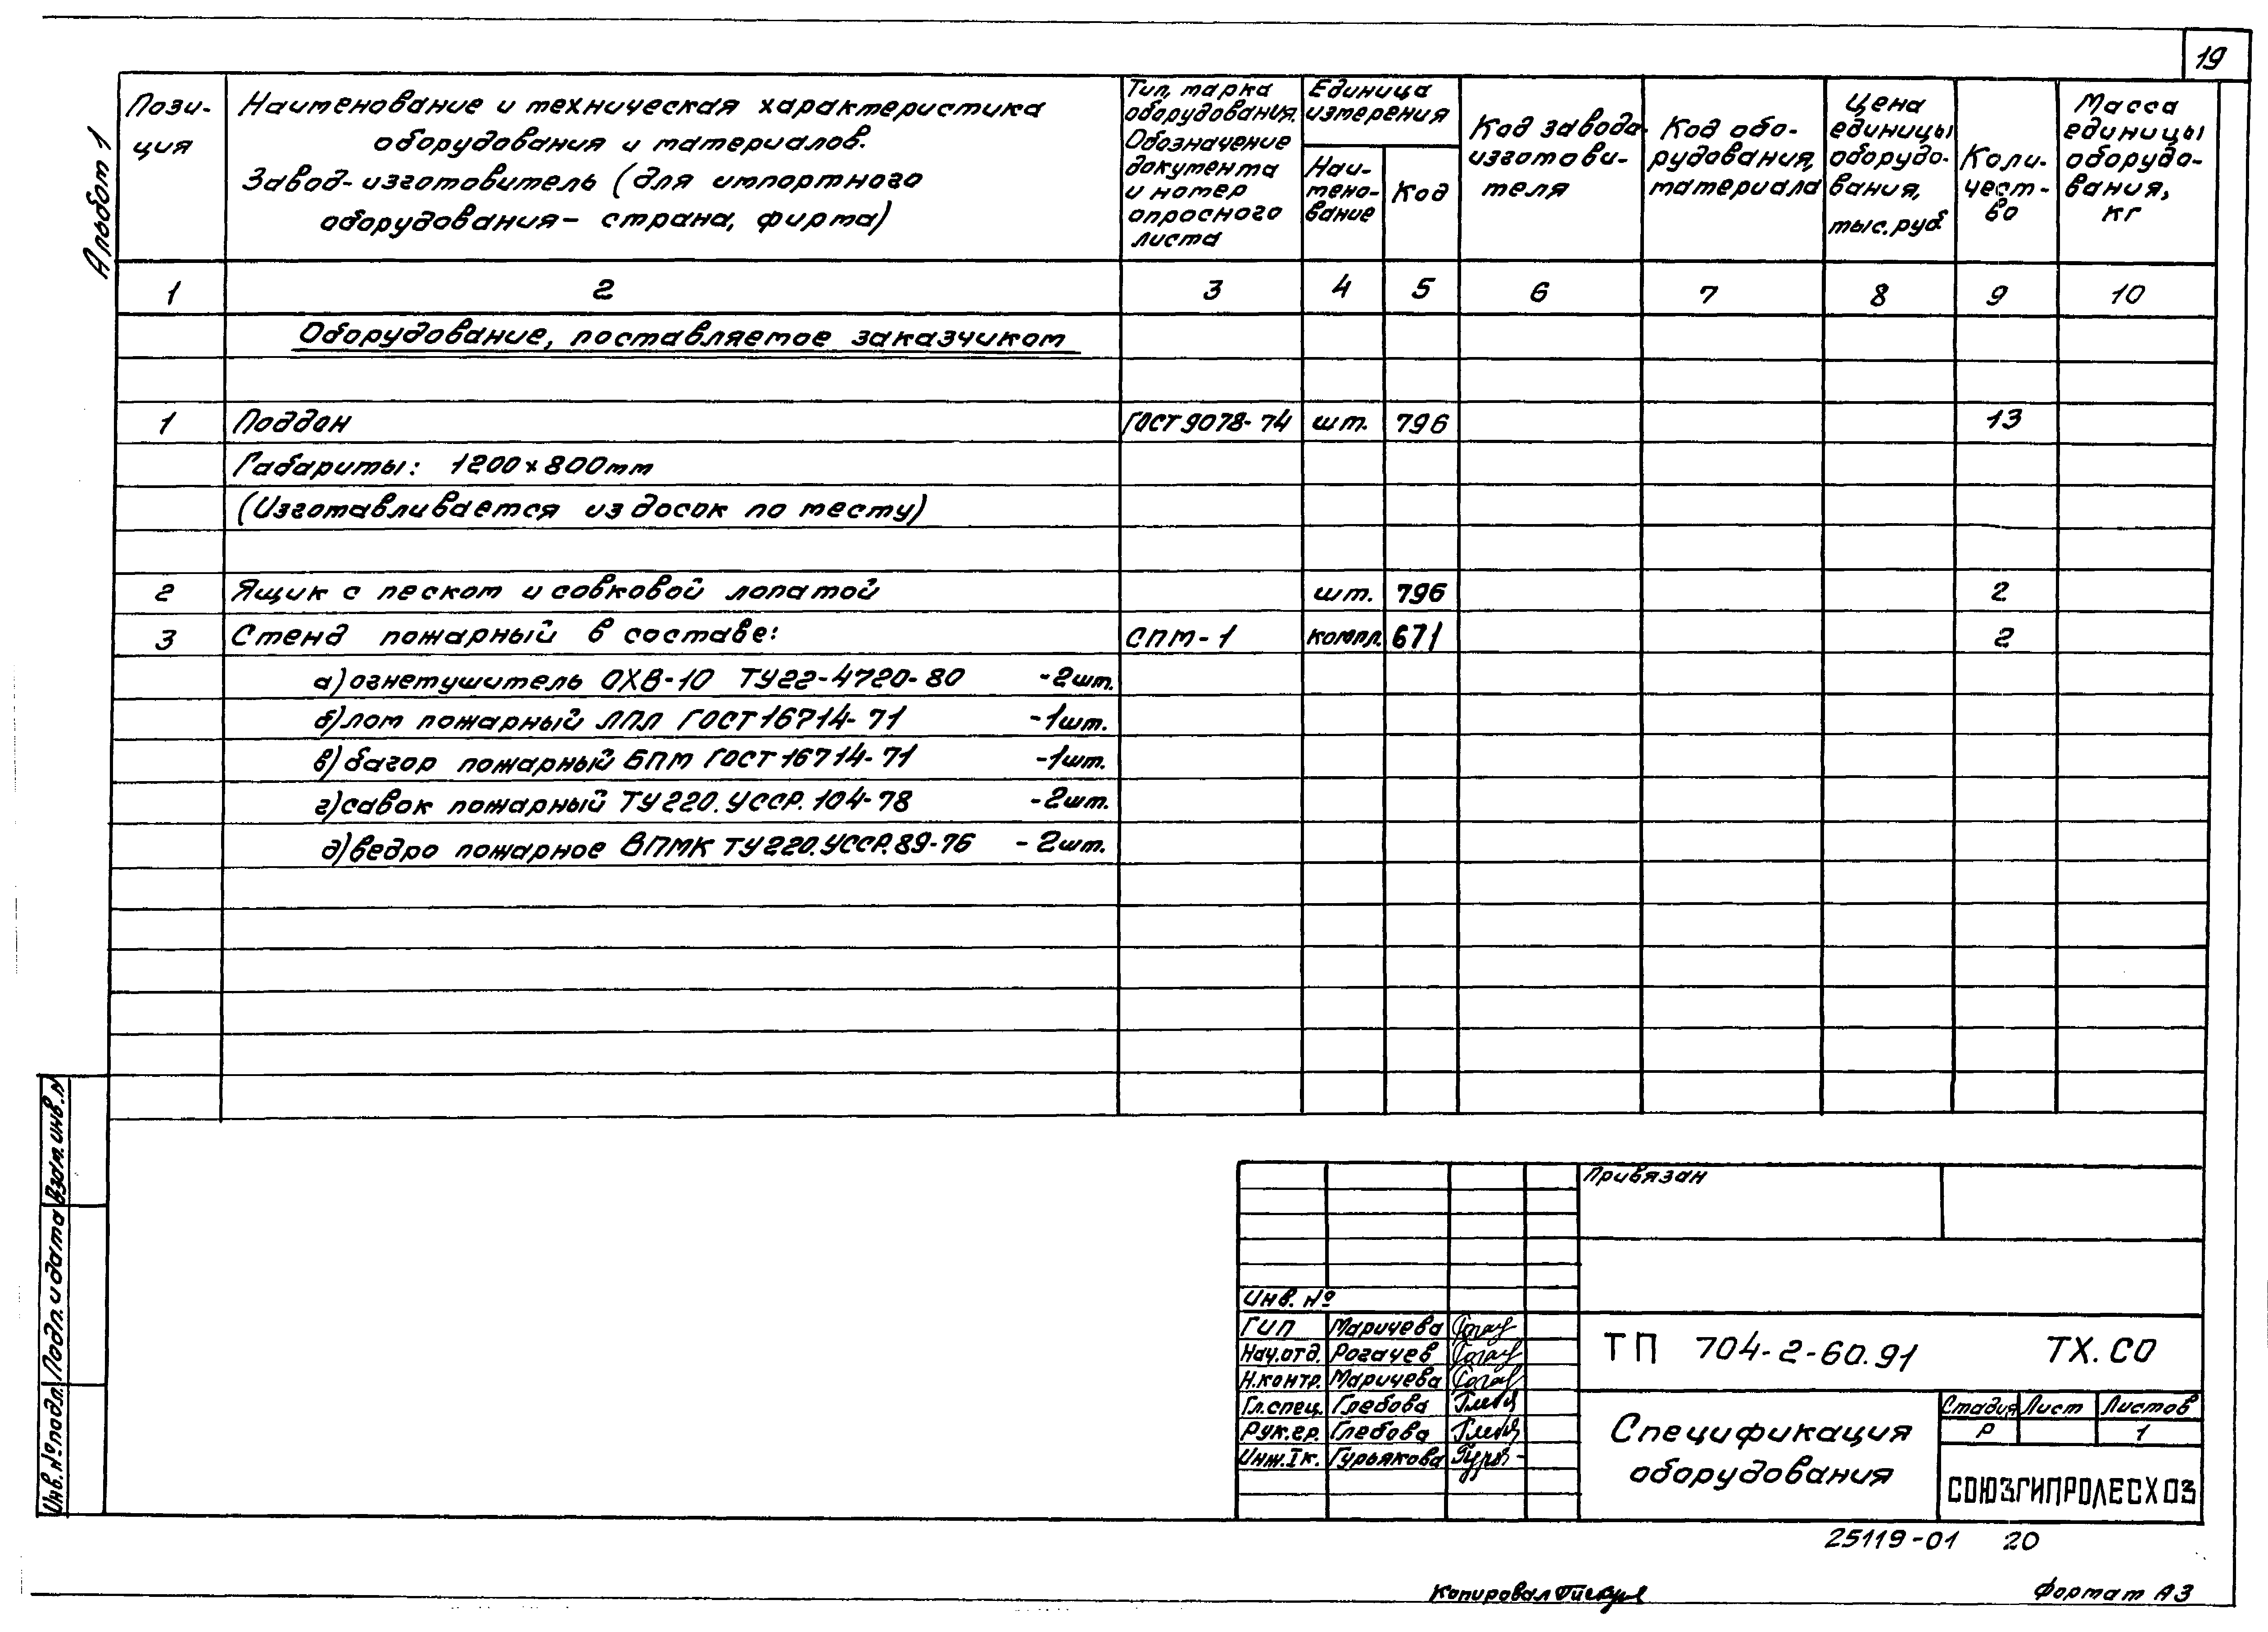 19
Альбом 1
Пози-
ция
Наименование и техническая характеристика
оборудования и материалов.
Завод-изготовитель (для импортного
оборудования- страна, фирма)
Тип, марка
оборудования.
Обозначение
документа
и номер
опросного
листа
Единица
измерения
Наи-
мено-
вание
Код
Код завода-
изготови-
теля
Код обо-
рудования,
материала
Цена
единицы
оборудо-
вания,
тыс.руб
Коли-
чест-
во
Масса
единицы
оборудо-
вания,
кг
1 2 3 4 5 6 7 8 9 10
Оборудование, поставляемое заказчиком
1 Поддон ГОСТ 9078-74 шт. 796 13
Габариты: 1200×800мм
(Изготавливается из досок по месту)
2 Ящик с песком и совковой лопатой шт. 796 2
3 Стенд пожарный в составе: СПМ-1 компл. 671 2
а) огнетушитель ОХВ-10 ТУ22-4720-80 -2шт.
б) лом пожарный ЛПЛ ГОСТ 16714-71 -1шт.
в) багор пожарный БПМ ГОСТ 16714-71 -1шт.
г) савок пожарный ТУ220.УССР.104-78 -2шт.
д) ведро пожарное ВПМК ТУ220.УССР.89-76 -2шт.
Взам.инв.N
Подп. и дата
Инв.Nº подл.
Привязан
Инв. Nº
ГИП Маричева
Нач.отд. Рогачев
Н.контр. Маричева
Гл.спец. Глебова
Рук.гр. Глебова
Инж.Iк. Гурьякова
ТП 704-2-60.91 ТХ.СО
Спецификация
оборудования
Стадия Лист Листов
Р 1
СОЮЗГИПРОЛЕСХОЗ
25119-01 20
Копировал
Формат А3